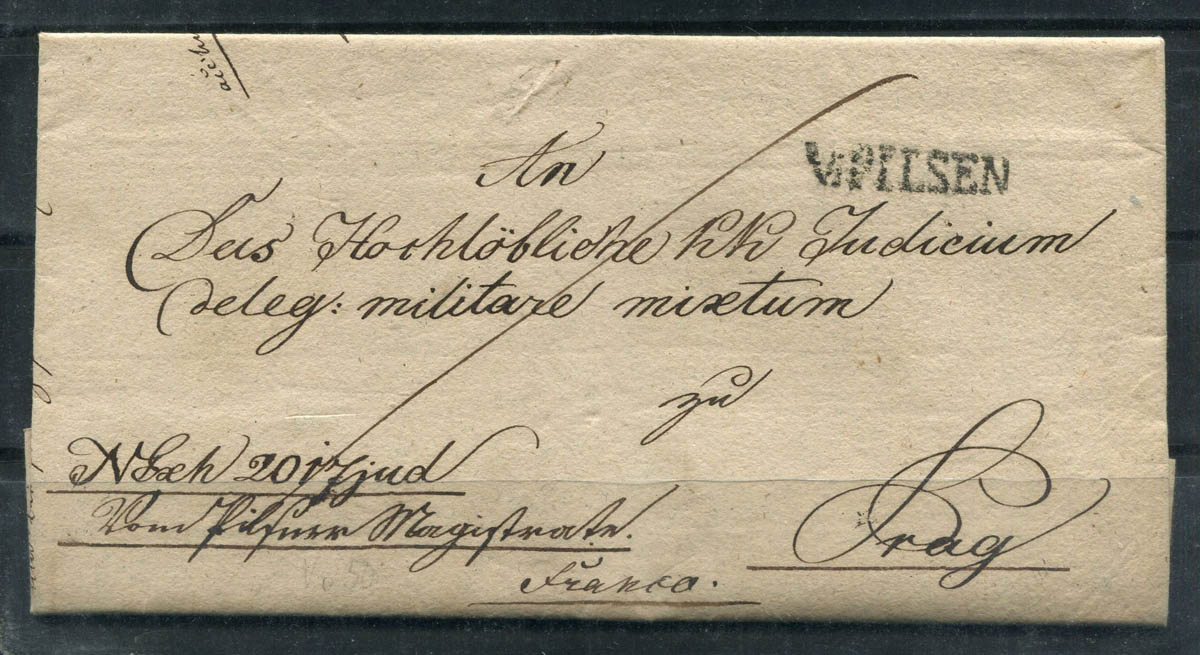 V:PILSEN
An
Das Hochlöbliche kk Judicium
deleg: militare mixtum
zu
Prag
N Exh 2017 jud
Vom Pilsner Magistrate.
Franco.